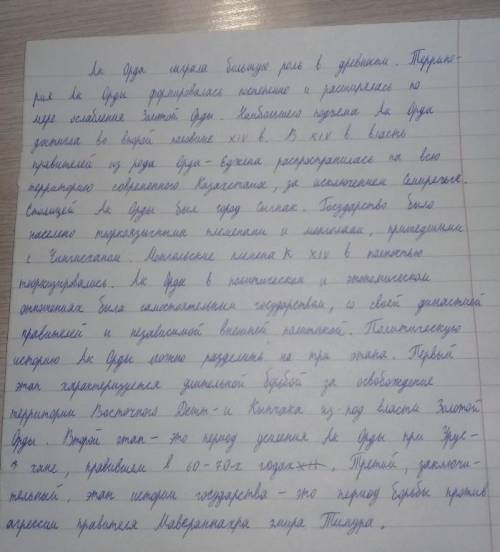 Ак Орда сыграла большую роль в древнем. Террито-
рия Ак Орды формировалась постепенно и расширялась по
мере ослабления Золотой Орды. Наибольшего подъема Ак Орда
достигла во второй половине XIV в. В XIV в. власть
правителей из рода Орда-Еджена распространилась на всю
территорию современного Казахстана, за исключением Семиречье.
Столицей Ак Орды был город Сыгнак. Государство было
населено тюркоязычными племенами и монголами, пришедшими
с Чингисханом. Монгольские племена к XIV в полностью
тюркизировались. Ак Орда в политическом и экономическом
отношениях была самостоятельным государством, со своей династией
правителей и независимой внешней политикой. Политическую
историю Ак Орды можно разделить на три этапа. Первый
этап характеризуется длительной борьбой за освобождение
территории Восточного Дешт-и Кыпчака из-под власти Золотой
Орды. Второй этап - это период усиления Ак Орды при Урус-
хане, правившем в 60-70-х годах. Третий, заключи-
тельный, этап истории государства - это период борьбы против
агрессии правителя Мавераннахра эмира Тимура.